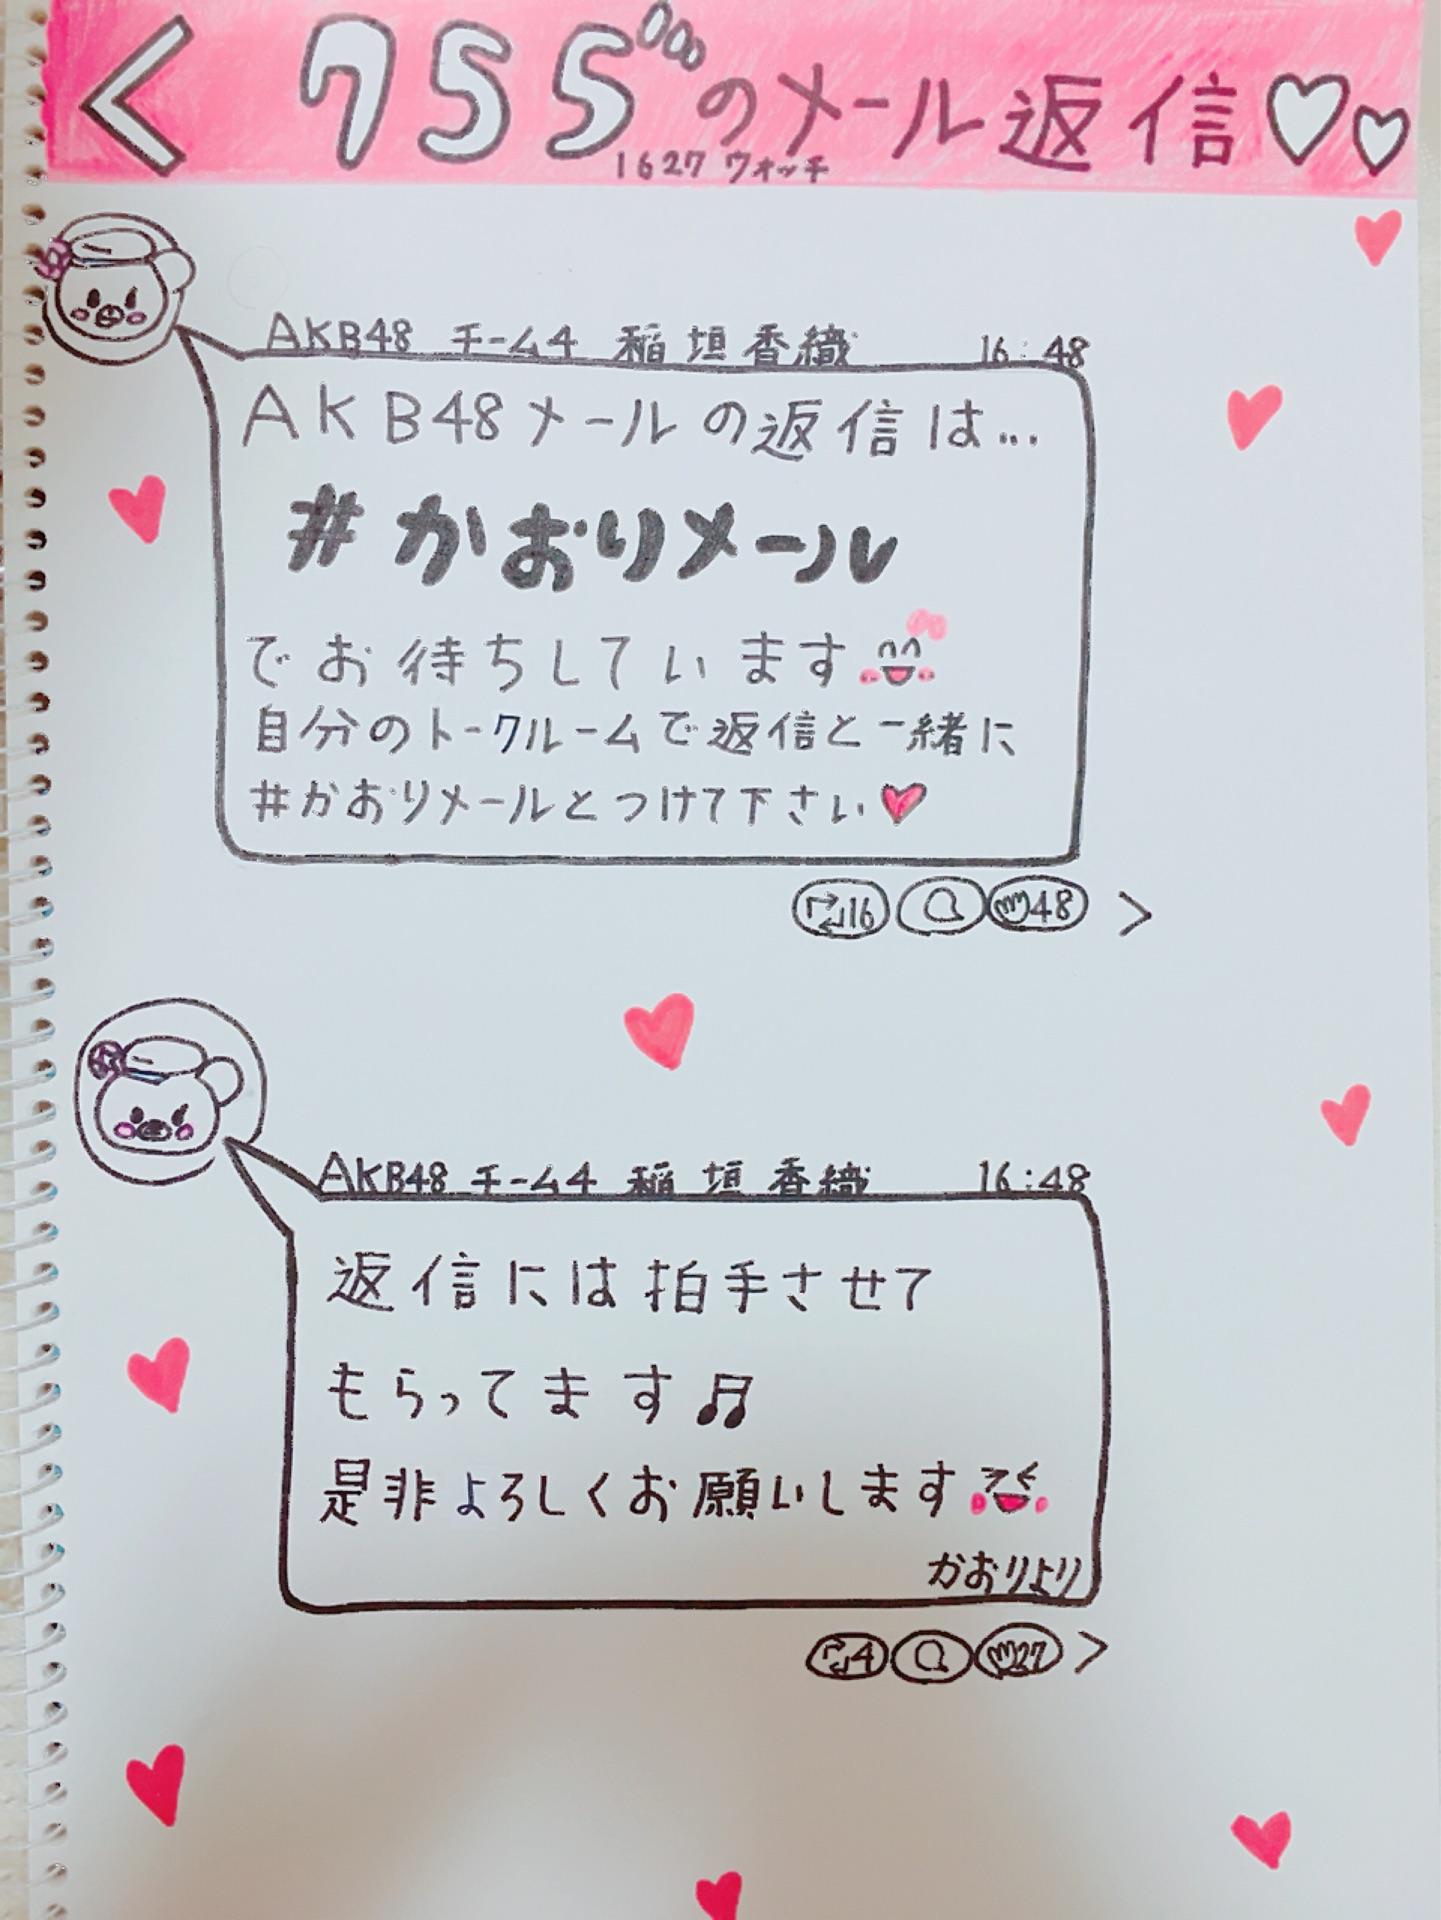 < 755のメール返信♡♡
1627 ウォッチ
AKB48 チーム4 稲垣香織 16:48
AKB48メールの返信は...
#かおりメール
でお待ちしています
自分のトークルームで返信と一緒に
#かおりメールとつけて下さい♥
16 48 >
AKB48 チーム4 稲垣香織 16:48
返信には拍手させて
もらってます♫
是非よろしくお願いします
かおりより
4 27 >